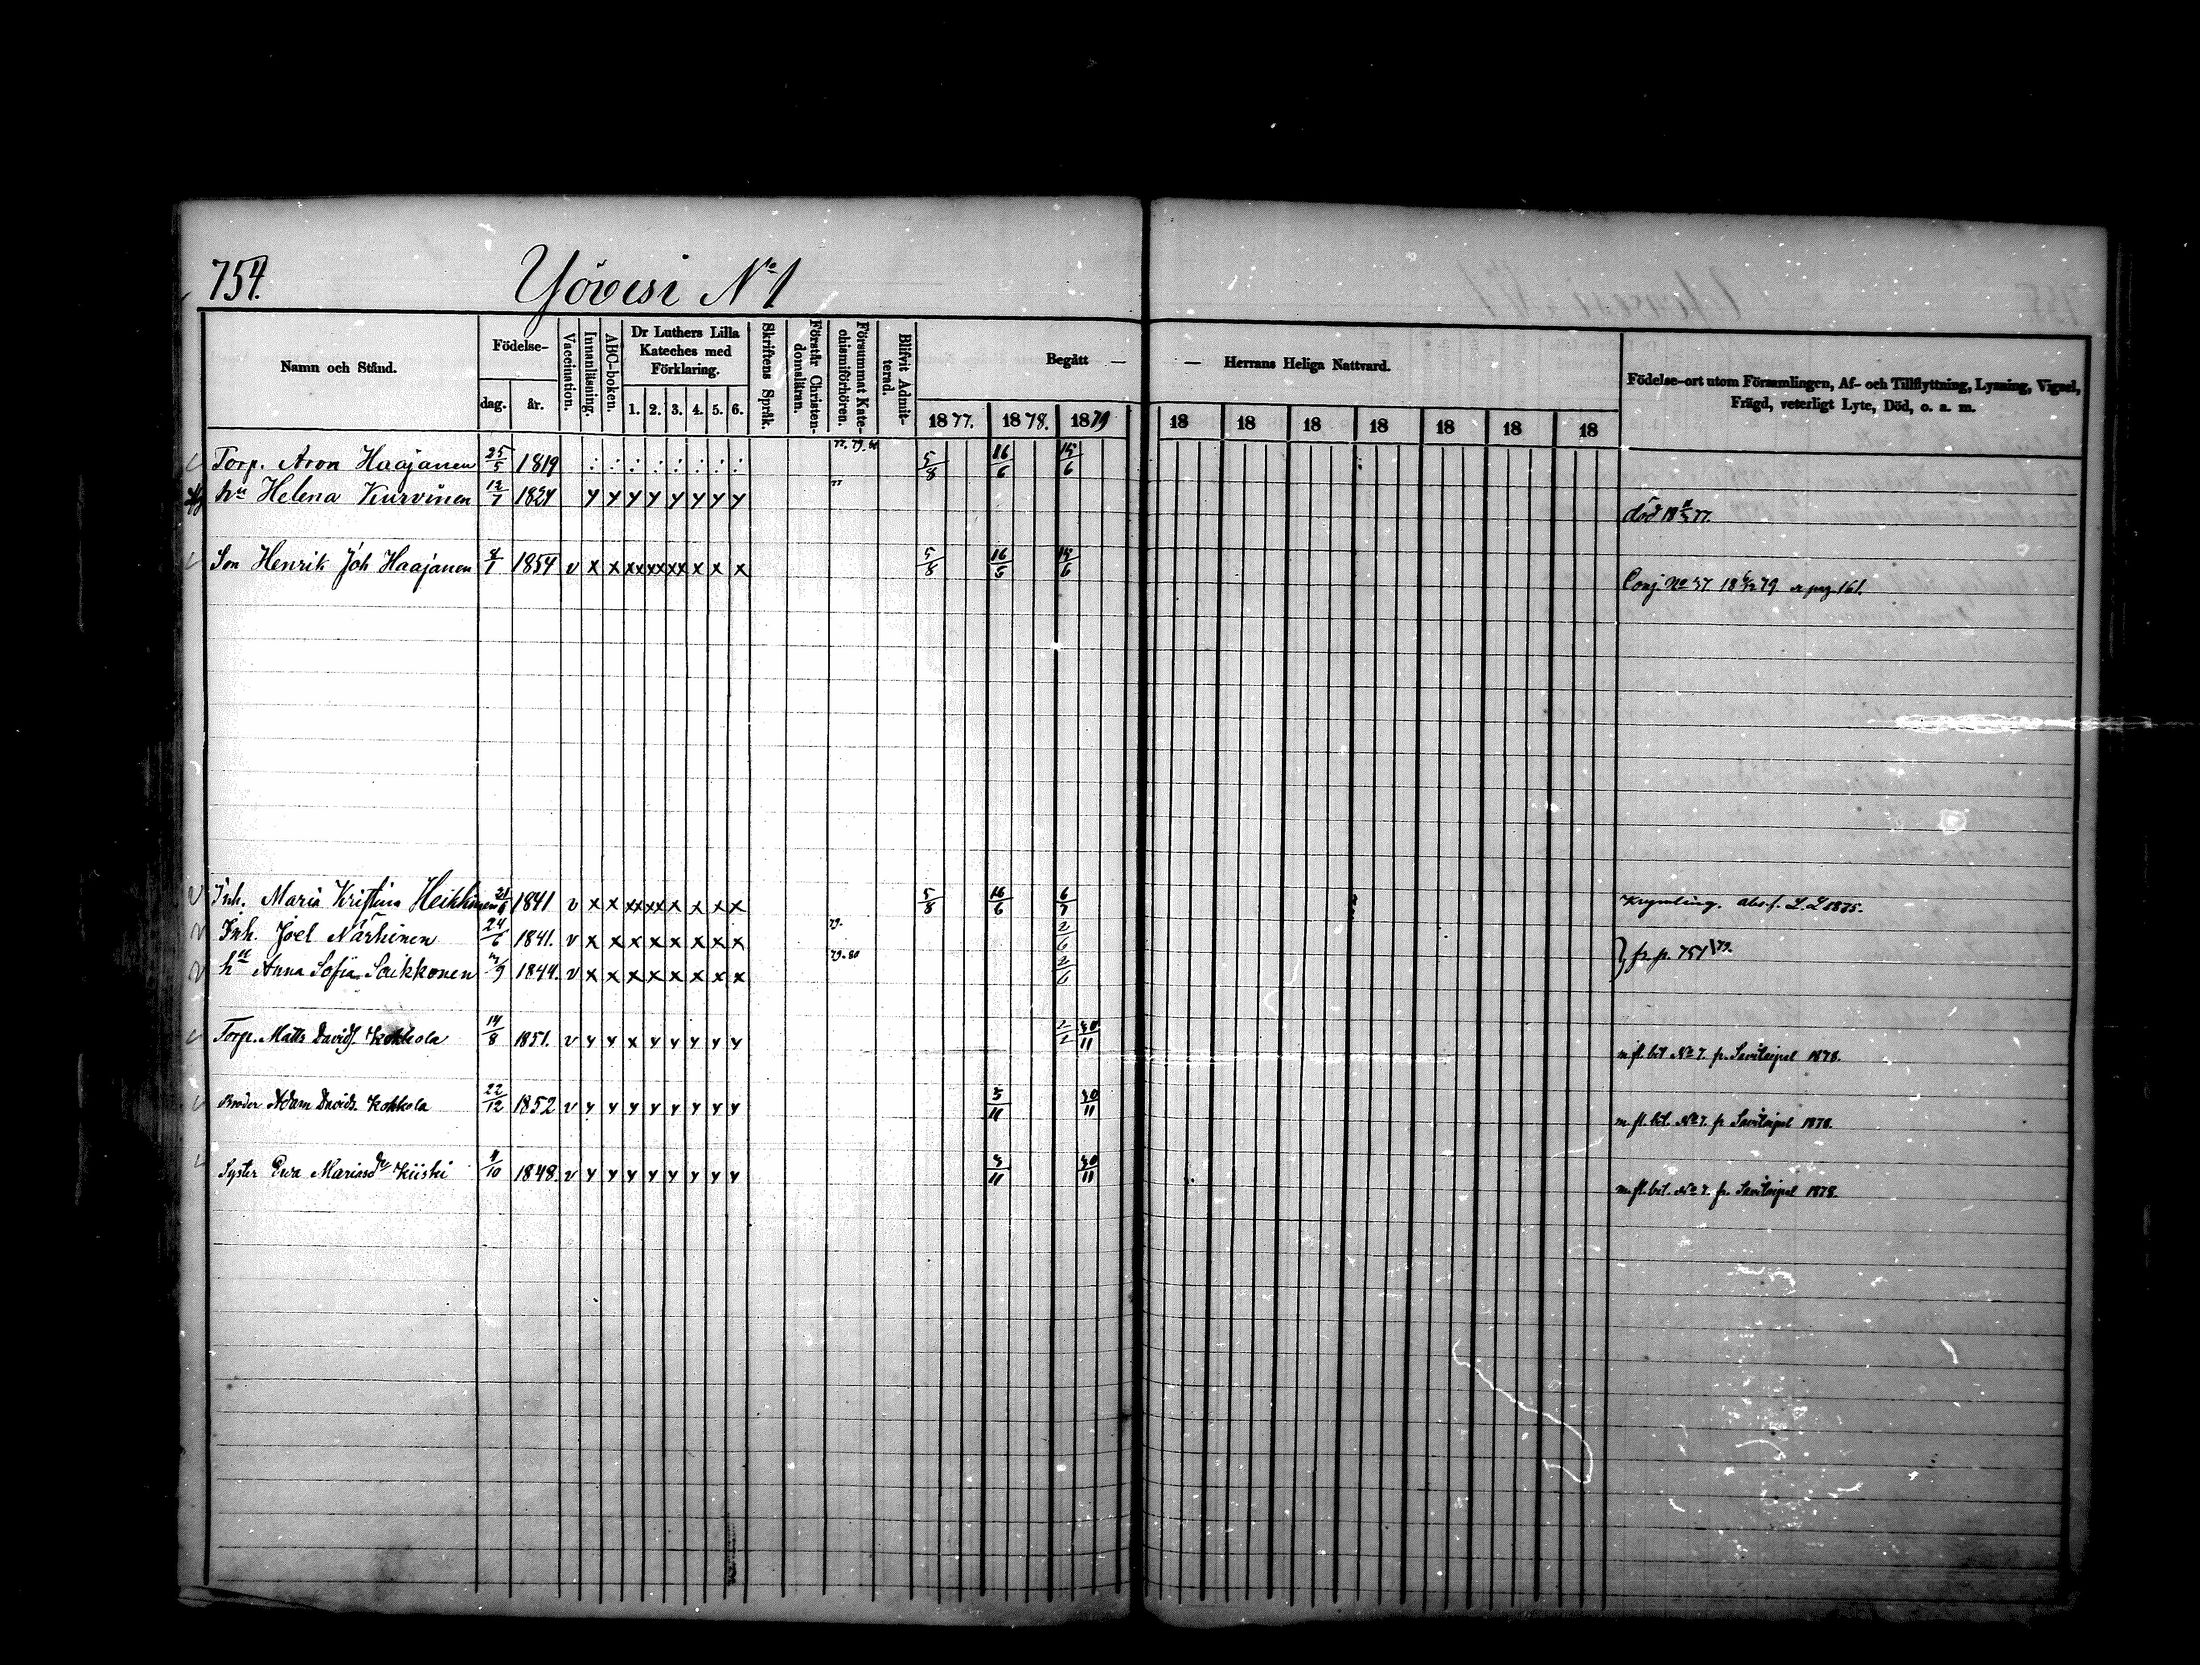 754. Yövesi No 1
Namn och Stånd. Födelse- dag. år. Vaccination. Innanläsning. ABC-boken. Dr Luthers Lilla Kateches med Förklaring. 1. 2. 3. 4. 5. 6. Skriftens Språk. Förstår Christendomsläran. Försummat Katechismiförhören. Blifvit Admitterad. Begått — — Herrans Heliga Nattvard. Födelse-ort utom Församlingen, Af- och Tillflyttning, Lysning, Vigsel, Frägd, veterligt Lyte, Död, o. s. m.
1877. 1878. 1879 18 18 18 18 18 18 18
Torp. Aron Haajanen 25/5 1819 77. 79. 5/8 16/6 15/6
hu Helena Kurvinen 12/7 1824 y y y y y y y y 77 död 77.
Son Henrik Joh Haajanen 1854 v x x xx xx xx x x x 5/8 16/6 15/6 Conj. No 37. 79 pag. 161.
Inh. Maria Kristina Heikkinen 1841 v x x xx xx x x x x 5/8 16/6 6/7 abs. f. L. L 1875.
Inh. Joel Närhinen 24/6 1841. v x x x x x x x x 79. 2/6
hu Anna Sofia Soikkonen 1844. v x x x x x x x x 79. 80 2/6 } fr. p. 751 79.
Torp. Matts Davids. Kokkola 14/8 1851. v y y x y y y y y 2/2 30/11 m. fl. bet. No 7. fr. Savitaipal 1878.
Broder Adam Davids. Kokkola 22/12 1852 v y y y y y y y y 3/11 30/11 m. fl. bet. No 7. fr Savitaipal 1878.
Syster Eva Mariasdr Kiiski 1848. v y y y y y y y y 3/11 30/11 m. fl. bet. No 7. fr. Savitaipal 1878.